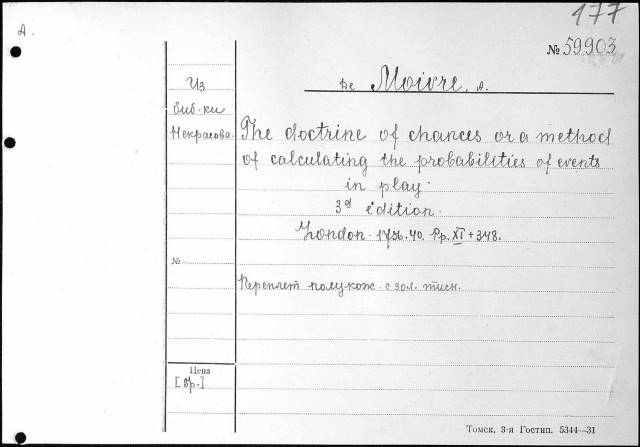 177
А.
№ 59903
De Moivre, A.
Из
биб-ки
Некрасова.
The doctrine of chances or a method
of calculating the probabilities of events
in play.
3d edition.
London. 1756. 4o. Pp. XI + 348.
№
Переплет полукож. с зол. тисн.
Цена
[3р.]
Томск, 3-я Гостип. 5344—31